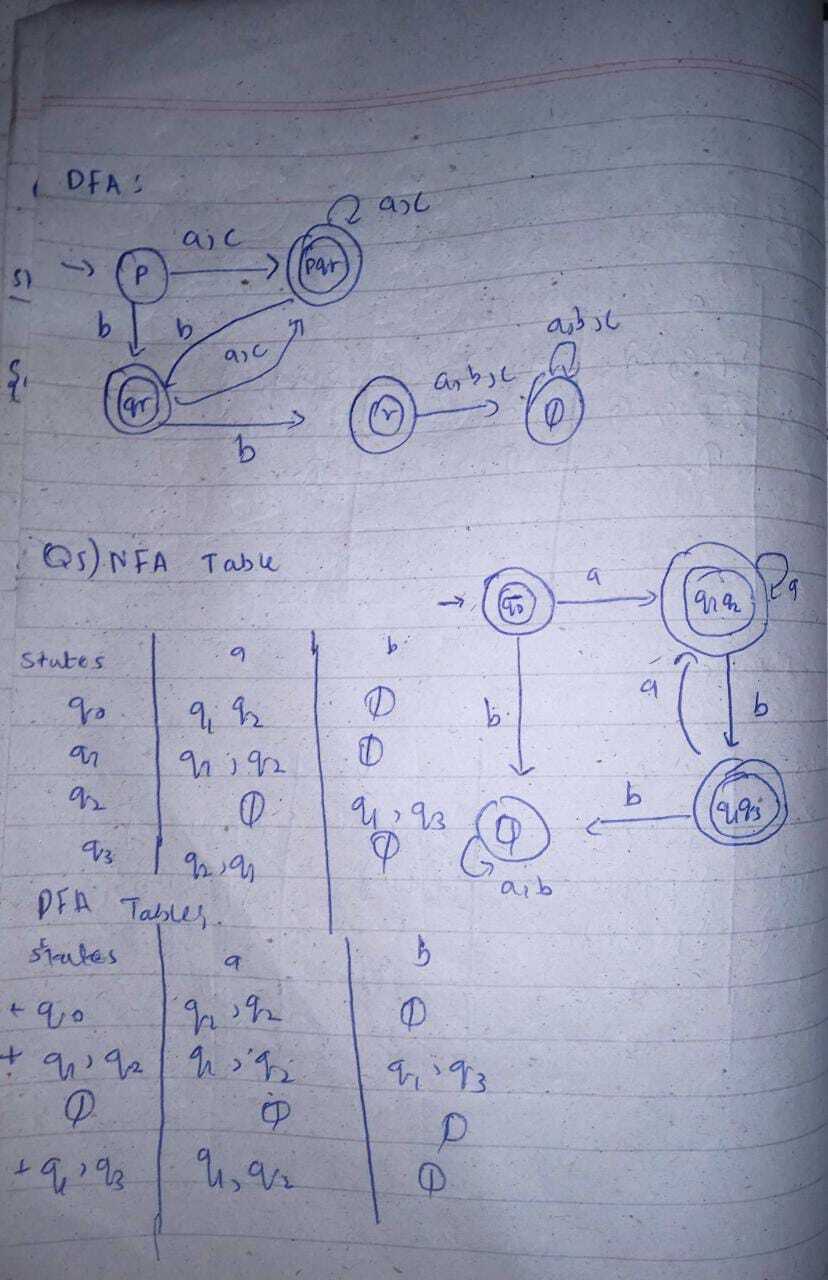 DFA :
a,c
a,c
P
pqr
b
b
a,c
a,b,c
qr
r
a,b,c
ϕ
b
Q5) NFA Table
q0
a
q1 q2
a
States a b
q0 q1 q2 ϕ
q1 q1, q2 ϕ
q2 ϕ q1, q3
q3 q2, q1 ϕ
b
a
b
q1q3
b
ϕ
a,b
DFA Tables
States a b
+ q0 q1, q2 ϕ
+ q1, q2 q1, q2 q1, q3
ϕ ϕ ϕ
+ q1, q3 q1, q2 ϕ